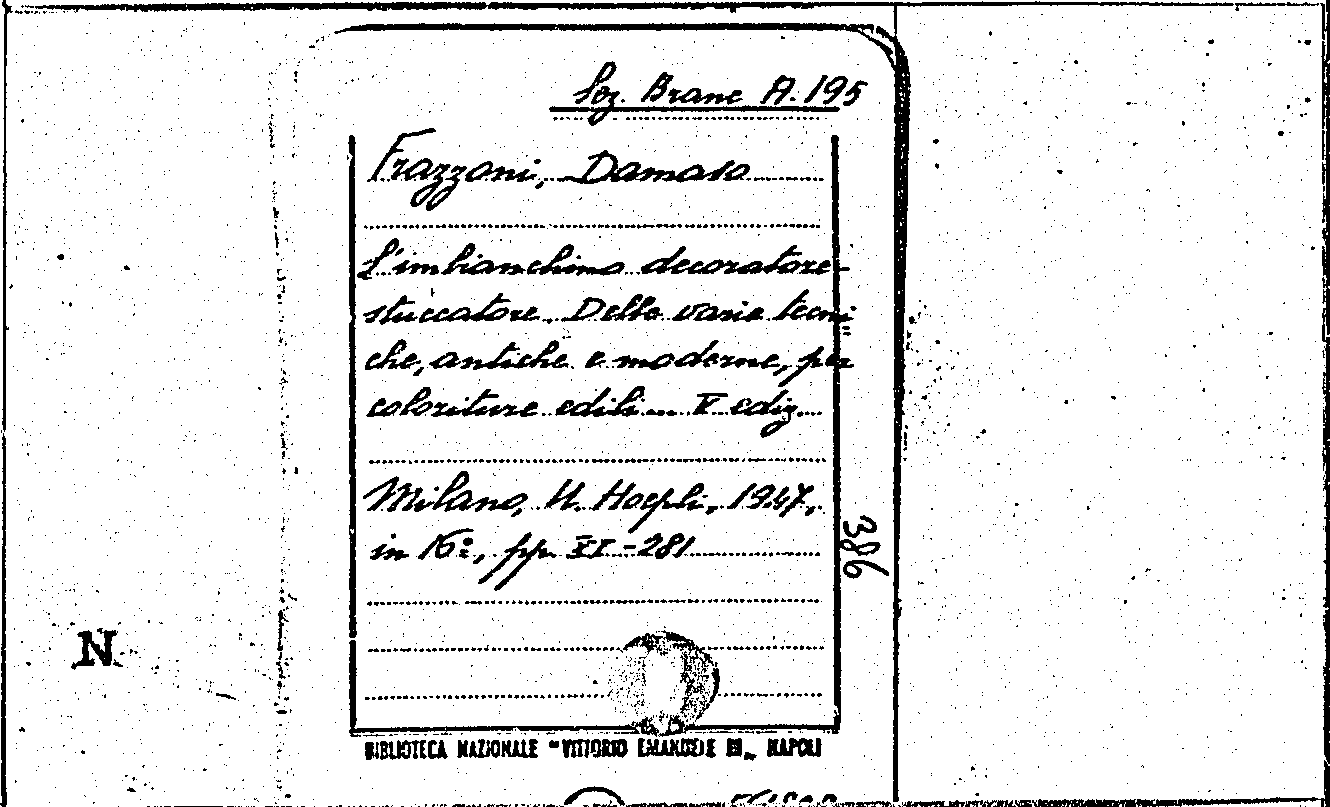 Sez. Branc A. 195
Frazzoni, Damaso
L'imbianchino decoratore-
stuccatore. Delle varie tecni=
che, antiche e moderne, per
coloriture edili... V ediz.
Milano, U. Hoepli, 1947,
in 16º, pp. XI-281
386
N
BIBLIOTECA NAZIONALE "VITTORIO EMANUELE III„ NAPOLI